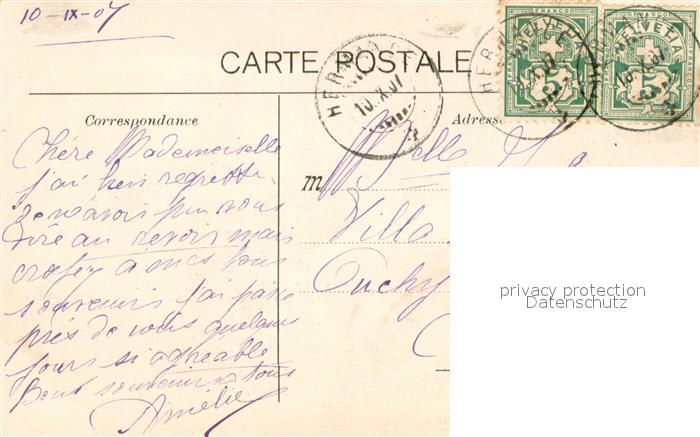 10-IX-07
CARTE POSTALE
FRANCO
HELVETIA
5
FRANCO
HELVETIA
5
HERMANCE
10.X.07
Correspondance
Adresse
Chère Mademoiselle
j'ai bien regretté
de n'avoir pu vous
dire au revoir mais
croyez à mes bons
souvenirs j'ai passé
près de vous quelques
jours si agréable
Bons souvenirs à tous
Amélie
M
elle
Villa
Ouchy
privacy protection
Datenschutz